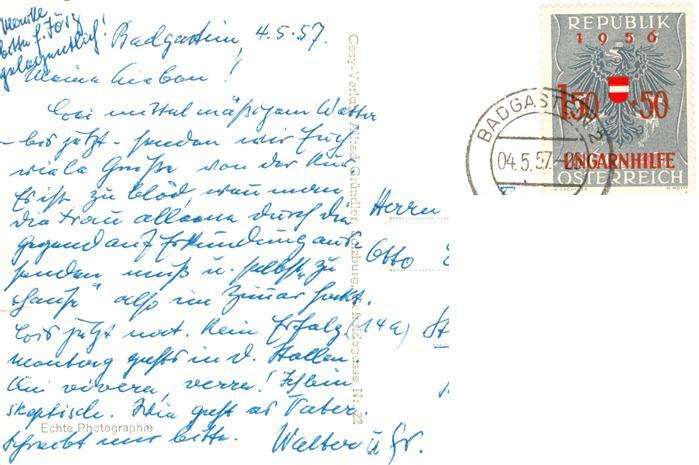 Marille
bitte f. Jörg
gelegentlich!
Badgastein, 4.5.57.
Meine Lieben!
Bei mittelmäßigem Wetter
– bis jetzt – senden wir Euch
viele Grüße von der Kur
Es ist zu blöd, wenn man
die Frau alleine durch die
Gegend auf Erkundung aus-
senden muß u. selbst „zu
Hause" also im Zimmer hockt.
Bis jetzt not. kein Erfolg
gehts in d. Stollen.
Qui vivera, verra! Ich bin
skeptisch. Wie geht es Vater.
Schreibt mir bitte. Walter u
Echte Photographie
Cosy-Verlag Alfred Gründler, Salzburg, Nr. 22
Herrn
Otto
(14a) St
REPUBLIK
1956
1.50 +50
UNGARNHILFE
ÖSTERREICH
BADGASTEIN
04.5.57.-